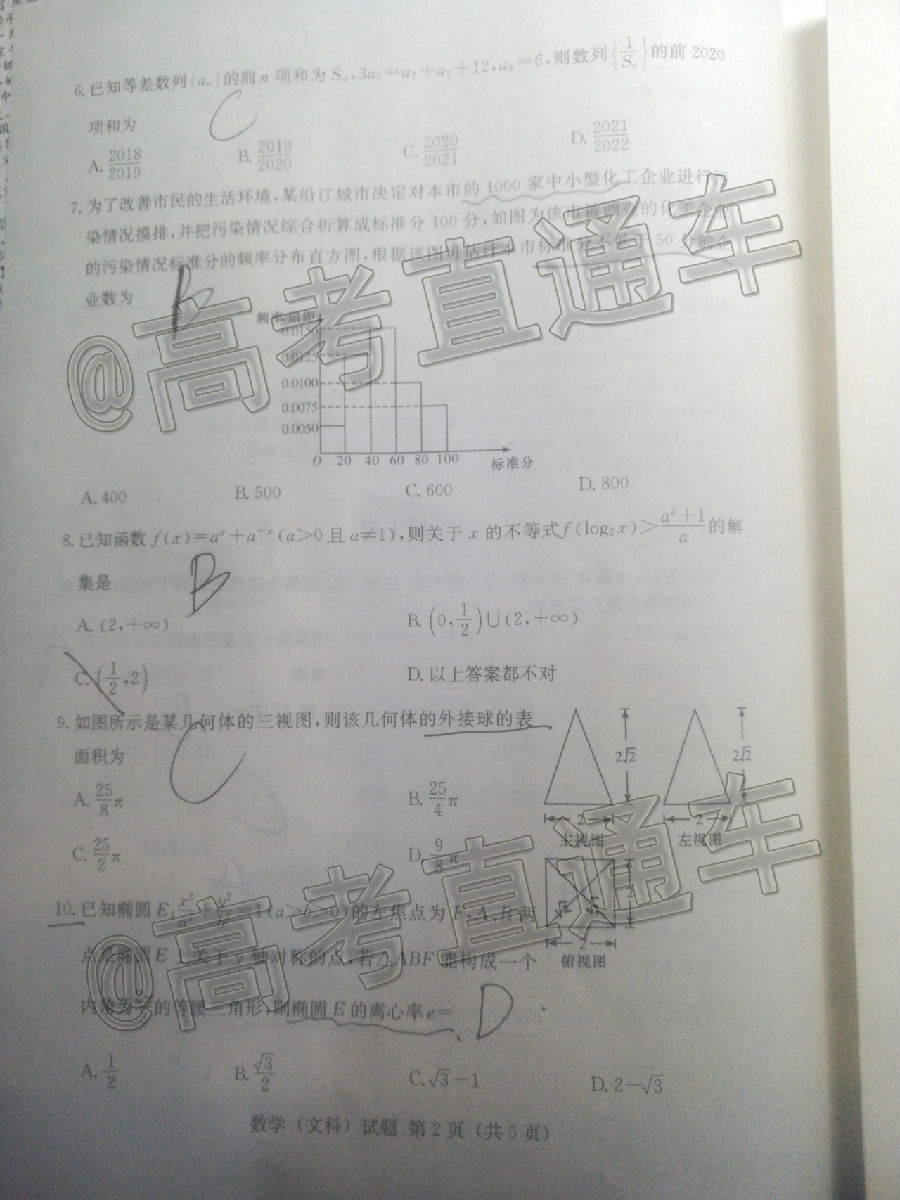 6.已知等差数列{aₙ}的前n项和为Sₙ,3a₅=a₂+a₇+12,a₃=6,则数列{1/Sₙ}的前2020
项和为
C
A.2018/2019 B.2019/2020 C.2020/2021 D.2021/2022
7.为了改善市民的生活环境,某沿江城市决定对本市的1000家中小型化工企业进行污
染情况摸排,并把污染情况综合折算成标准分100分,如图为该市被调查的化工企业
的污染情况标准分的频率分布直方图,根据该图可估计本市标准分不低于50分的企
业数为
B
频率/组距
0.0150
0.0125
0.0100
0.0075
0.0050
0 20 40 60 80 100 标准分
A.400 B.500 C.600 D.800
8.已知函数f(x)=aˣ+a⁻ˣ(a>0且a≠1),则关于x的不等式f(log₂x)>(a²+1)/a的解
集是
B
A.(2,+∞) B.(0,1/2)∪(2,+∞)
C.(1/2,2) D.以上答案都不对
9.如图所示是某几何体的三视图,则该几何体的外接球的表
面积为
C
A.25/8π B.25/4π
C.25/2π D.9/8π
2√2 2√2
2 2
主视图 左视图
2
2
俯视图
10.已知椭圆E:x²/a²+y²/b²=1(a>b>0)的左焦点为F,A、B两
点是椭圆E上关于y轴对称的点,若△ABF能构成一个
内角为的等腰三角形,则椭圆E的离心率e=
D
A.1/2 B.√3/2 C.√3-1 D.2-√3
数学(文科)试题 第2页(共5页)
@高考直通车
@高考直通车